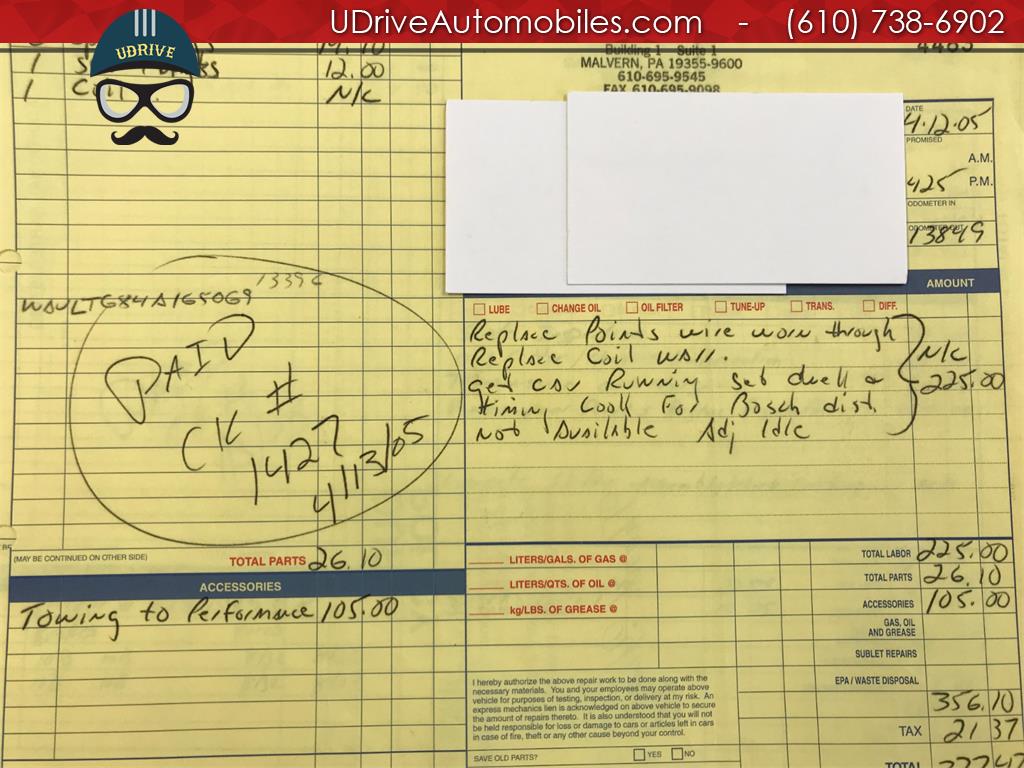 UDriveAutomobiles.com - (610) 738-6902
UDRIVE
14.10
1 12.00
1 N/C
Building 1 Suite 1
MALVERN, PA 19355-9600
610-695-9545
FAX 610-695-9098
4483
DATE
4-12-05
PROMISED
A.M.
425 P.M.
ODOMETER IN
ODOMETER OUT
13849
AMOUNT
LUBE CHANGE OIL OIL FILTER TUNE-UP TRANS. DIFF.
Replace Points wire worn through
Replace Coil N/C
Get car Running Set dwell & 225.00
timing Look For Bosch dist.
Not Available Adj Idle
PAID
CK #
1427
4/13/05
(MAY BE CONTINUED ON OTHER SIDE) TOTAL PARTS 26.10
ACCESSORIES
Towing to Performance 105.00
LITERS/GALS. OF GAS @
LITERS/QTS. OF OIL @
kg/LBS. OF GREASE @
TOTAL LABOR 225.00
TOTAL PARTS 26.10
ACCESSORIES 105.00
GAS, OIL
AND GREASE
SUBLET REPAIRS
EPA / WASTE DISPOSAL
356.10
TAX 21 37
TOTAL 377.47
I hereby authorize the above repair work to be done along with the
necessary materials. You and your employees may operate above
vehicle for purposes of testing, inspection, or delivery at my risk. An
express mechanics lien is acknowledged on above vehicle to secure
the amount of repairs thereto. It is also understood that you will not
be held responsible for loss or damage to cars or articles left in cars
in case of fire, theft or any other cause beyond your control.
SAVE OLD PARTS? YES NO